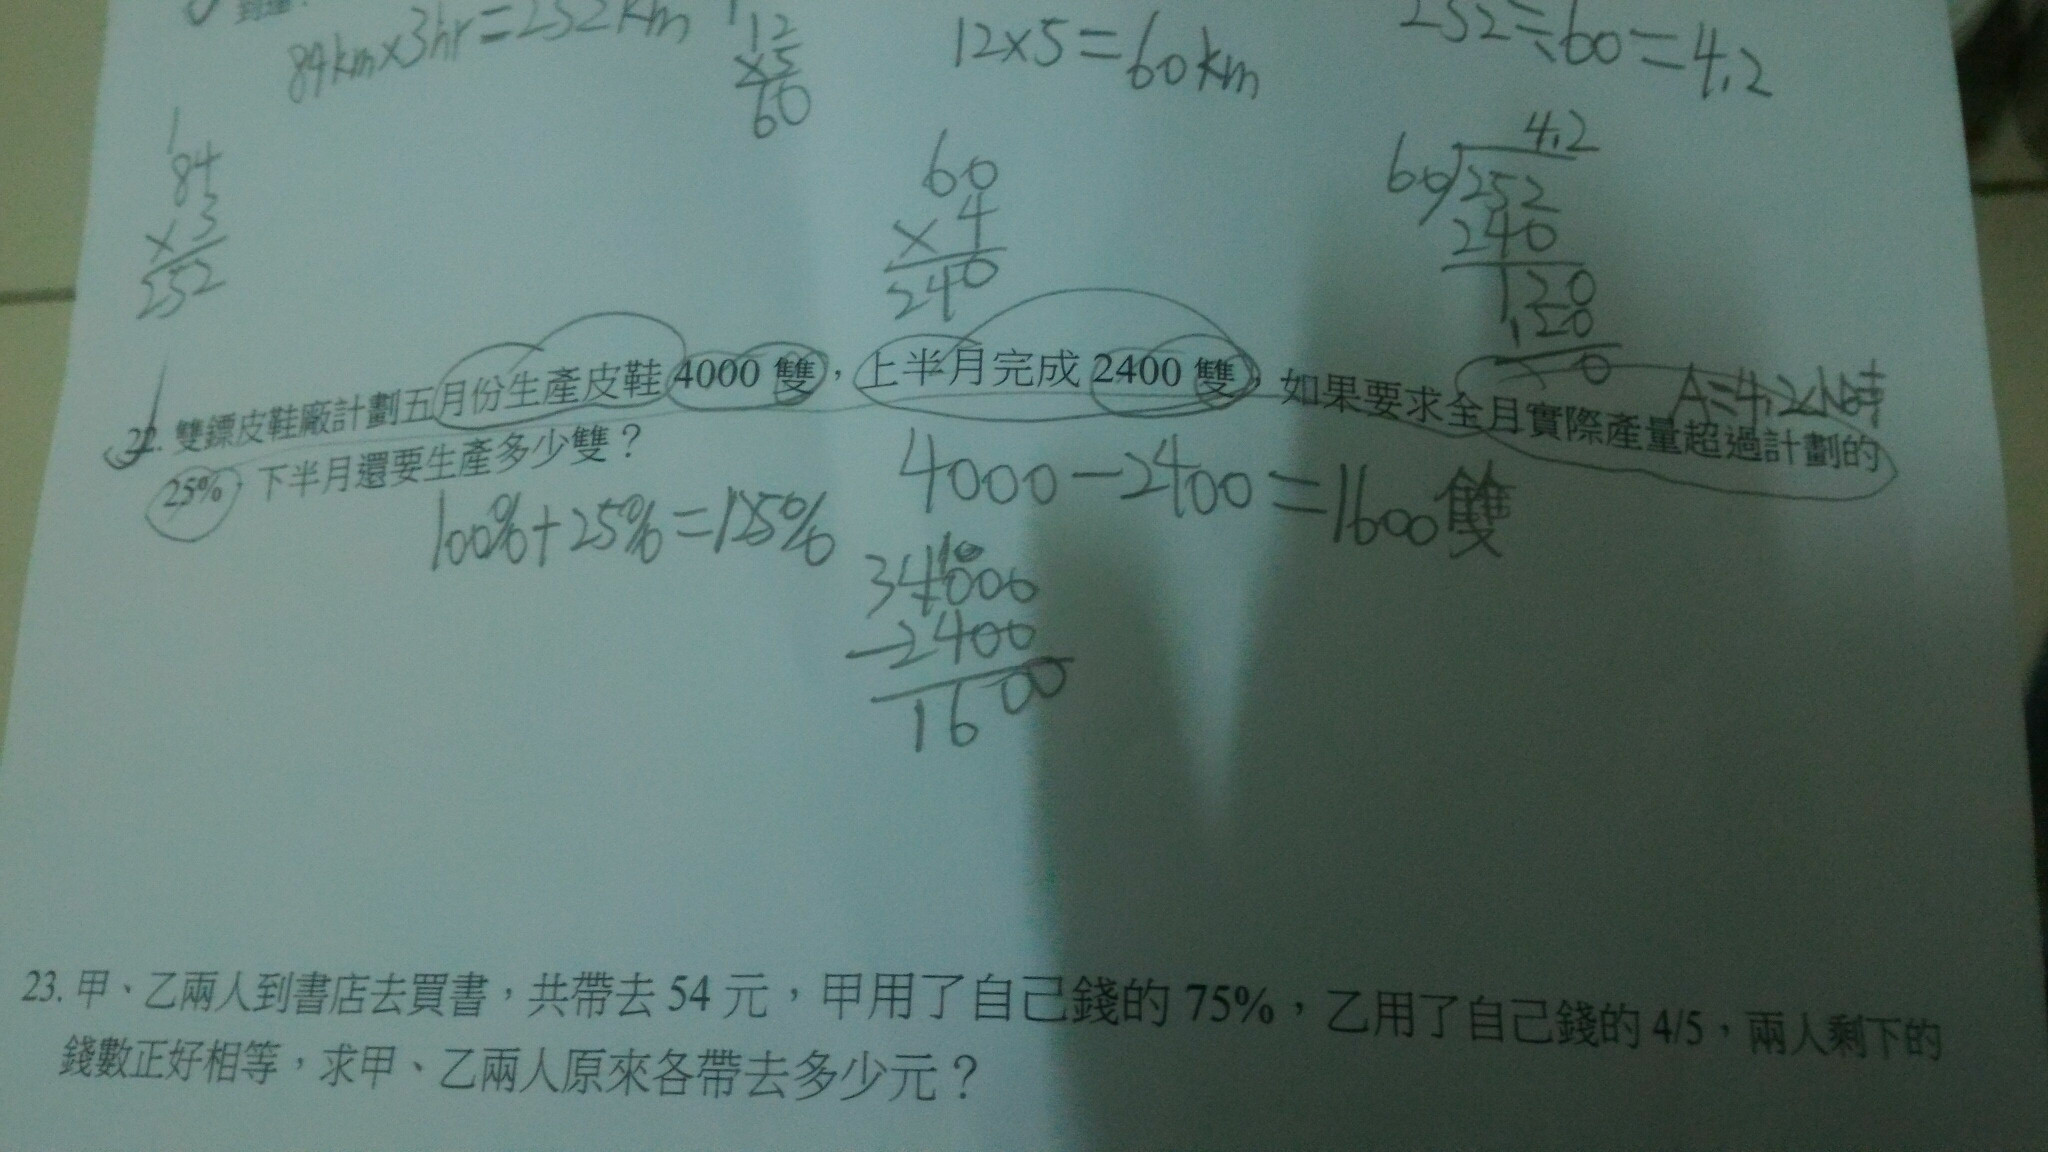 84km×3hr=252km
12
×5
60
12×5=60km
252÷60=4.2
1
84
×3
252
60
×4
240
4.2
60)252
240
120
120
0
A=4.2
22. 雙鏢皮鞋廠計劃五月份生產皮鞋 4000 雙，上半月完成 2400 雙，如果要求全月實際產量超過計劃的
25%，下半月還要生產多少雙？
100%+25%=125%
4000-2400=1600雙
4000
-2400
1600
23. 甲、乙兩人到書店去買書，共帶去 54 元，甲用了自己錢的 75%，乙用了自己錢的 4/5，兩人剩下的
錢數正好相等，求甲、乙兩人原來各帶去多少元？